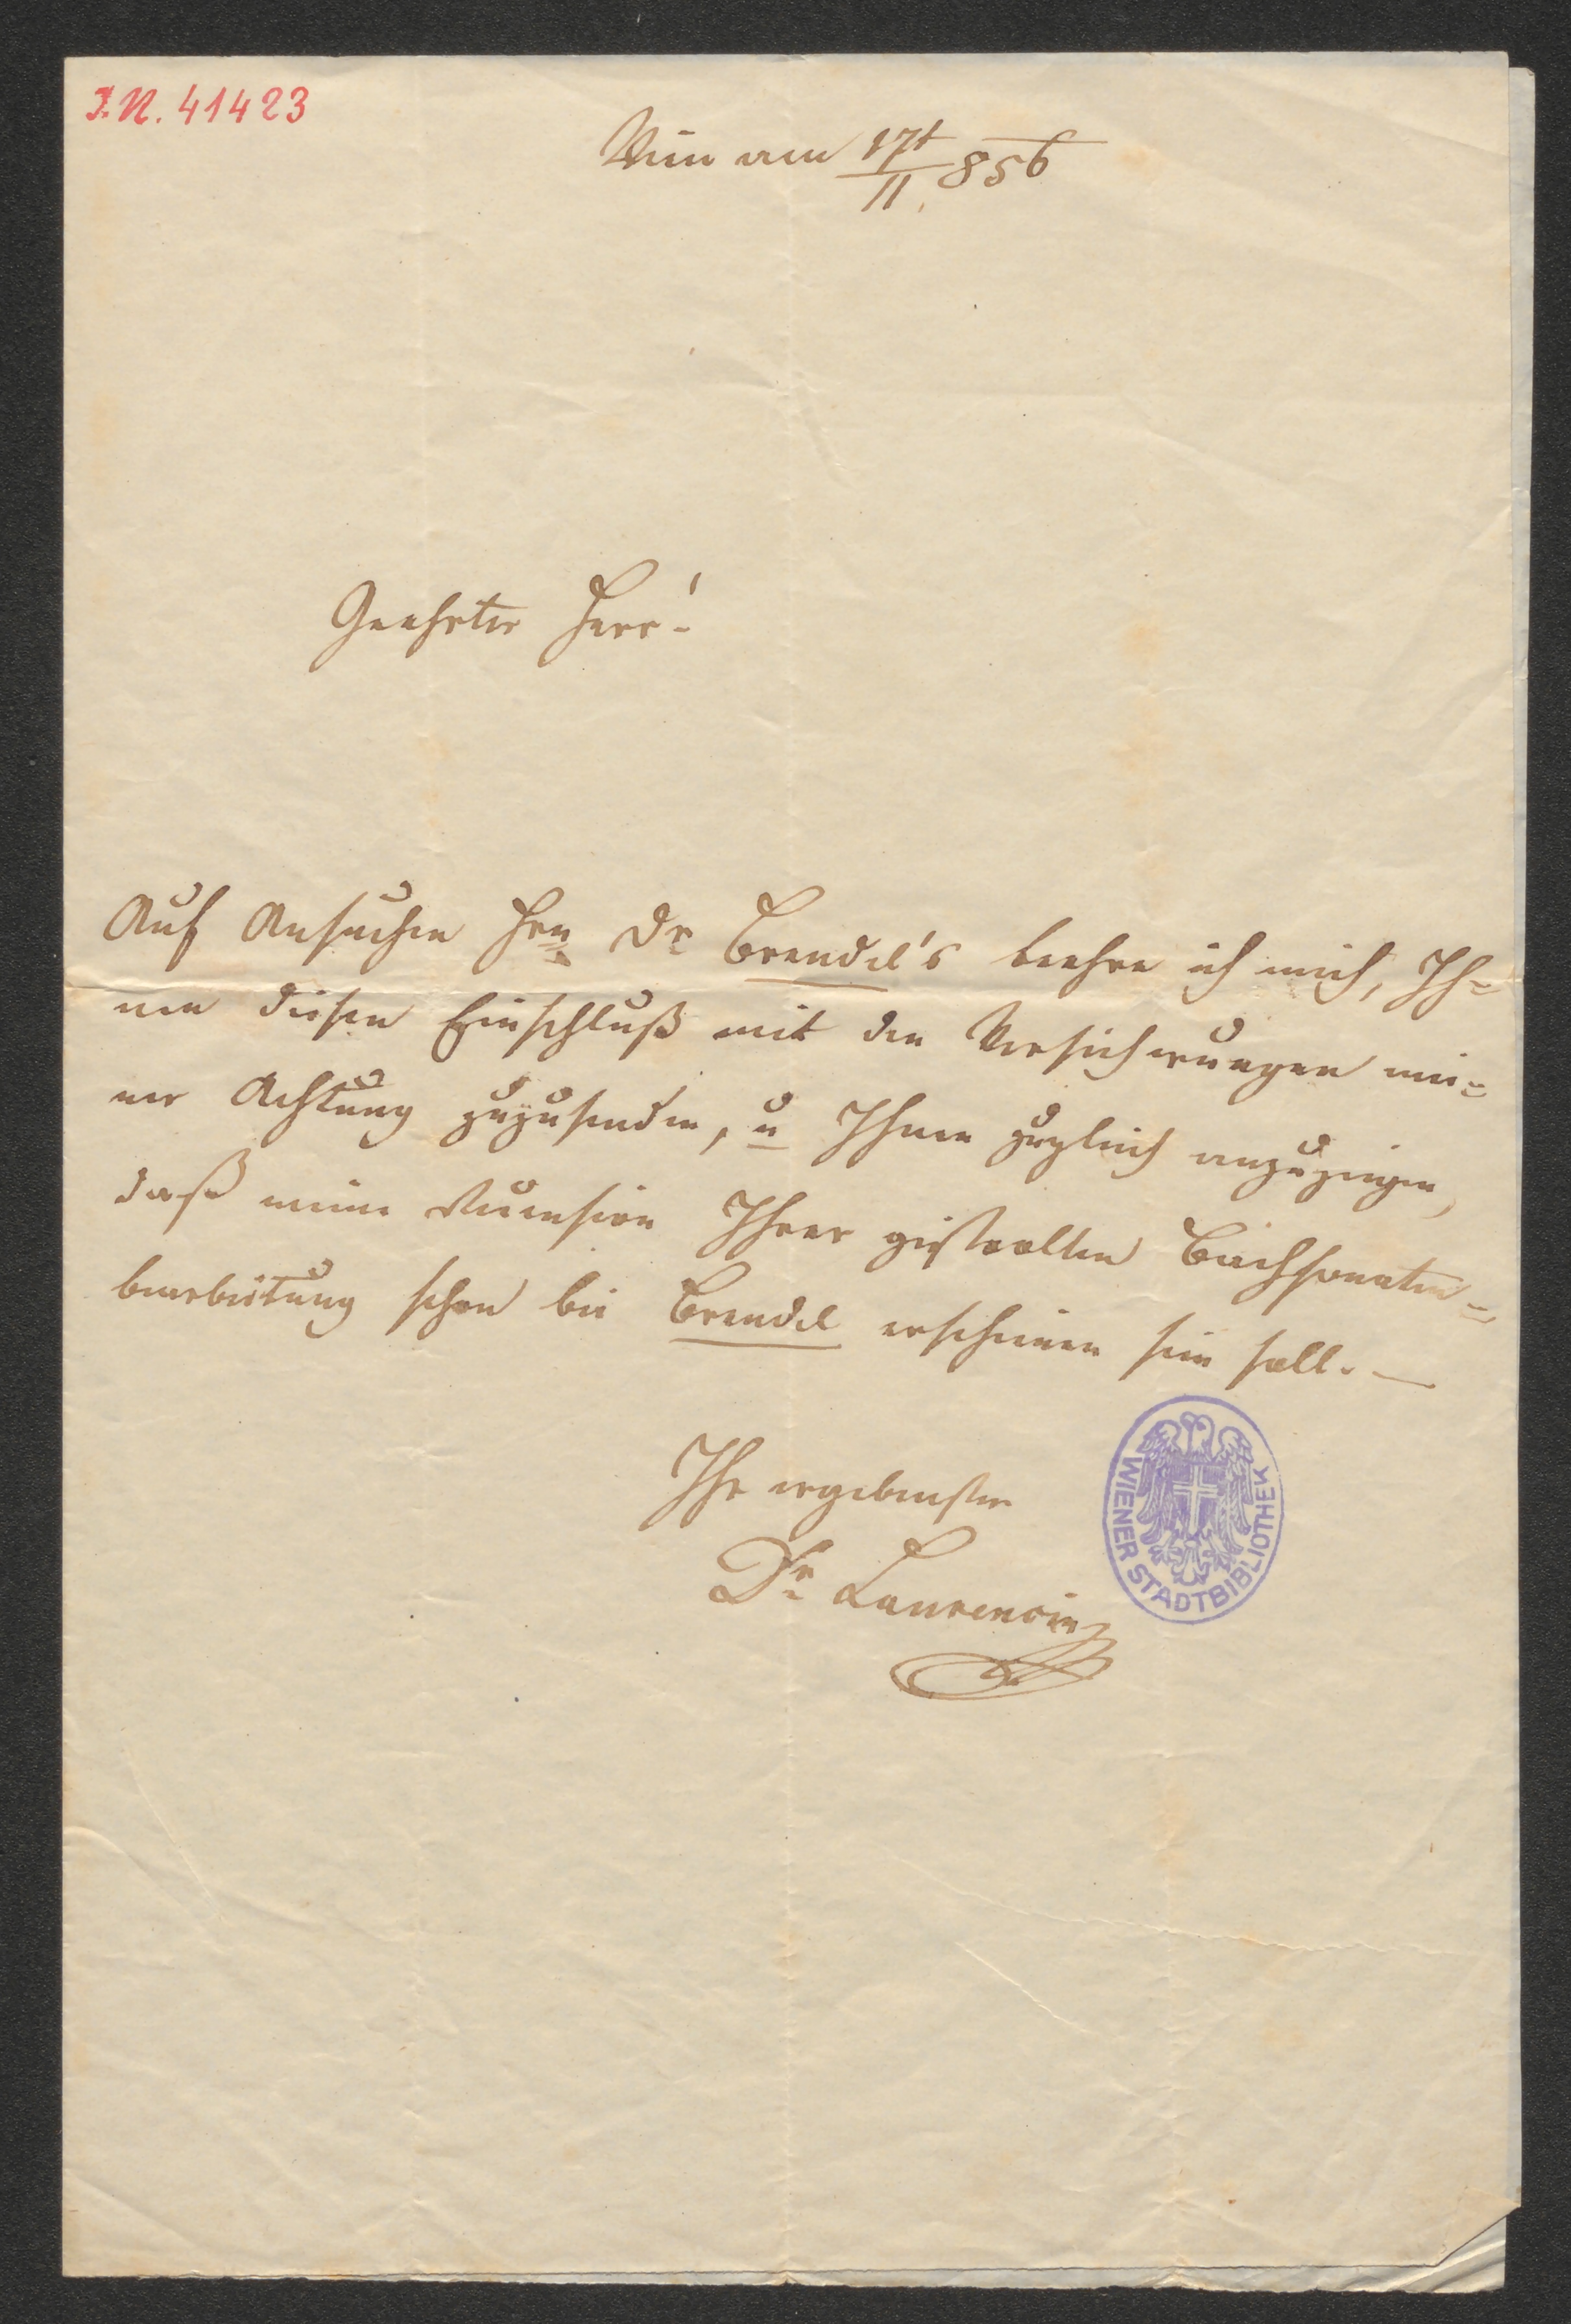 I. N. 41423
Wien am 17t/11. 856
Geehrter Herr!
Auf Ansuchen Hrn Dr Brendel's beehre ich mich, Ih=
nen diesen Einschluß mit den Versicherungen mei=
ner Achtung zuzusenden, u Ihnen zugleich anzuzeigen,
daß meine Recension Ihrer geistvollen Bachsonaten=
bearbeitung schon bei Brendel erschienen sein soll. —
Ihr ergebenster
Dr Laurencin
WIENER STADTBIBLIOTHEK